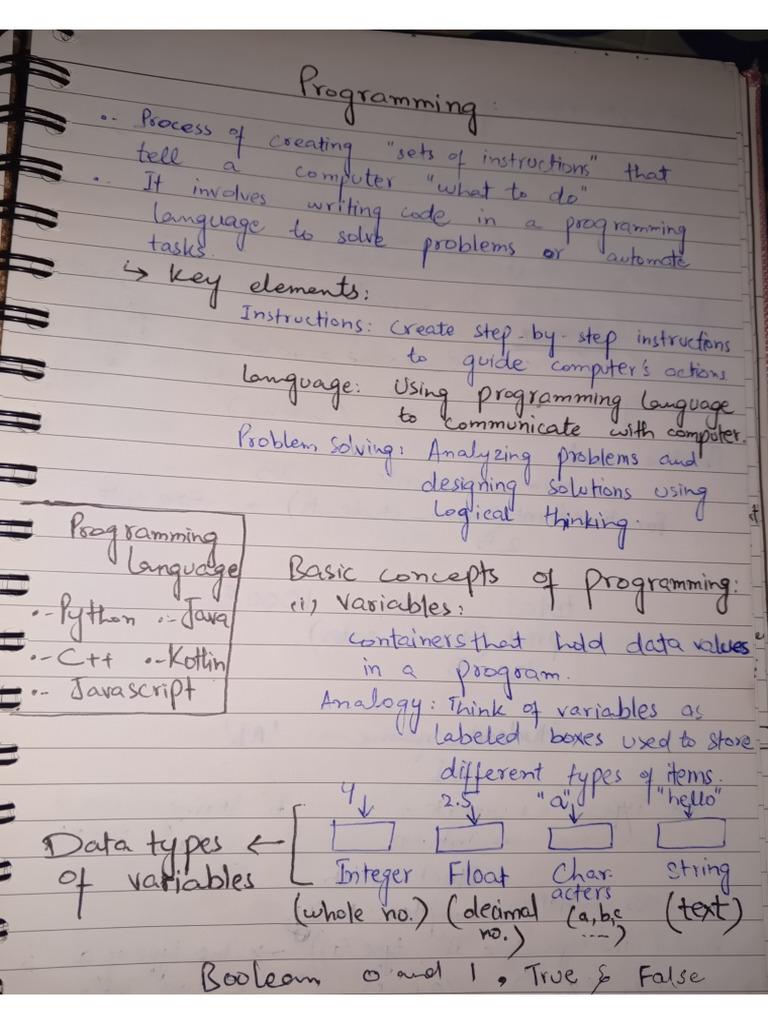 Programming:
·- Process of creating "sets of instructions" that
tell a computer "what to do"
·- It involves writing code in a programming
language to solve problems or automate
tasks.
↳ Key elements:
Instructions: Create step-by-step instructions
to guide computer's actions
Language: Using programming language
to communicate with computer.
Problem Solving: Analyzing problems and
designing solutions using
logical thinking.
Programming
language
·- Python ·- Java
·- C++ ·- Kotlin
·- Javascript
Basic concepts of programming:
(i) Variables:
containers that hold data values
in a program.
Analogy: Think of variables as
labeled boxes used to store
different types of items.
4 2.5 "a" "hello"
Data types ←
of variables
Integer Float Char- String
acters
(whole no.) (decimal (a,b,c (text)
no.) ....)
Boolean 0 and 1, True & False